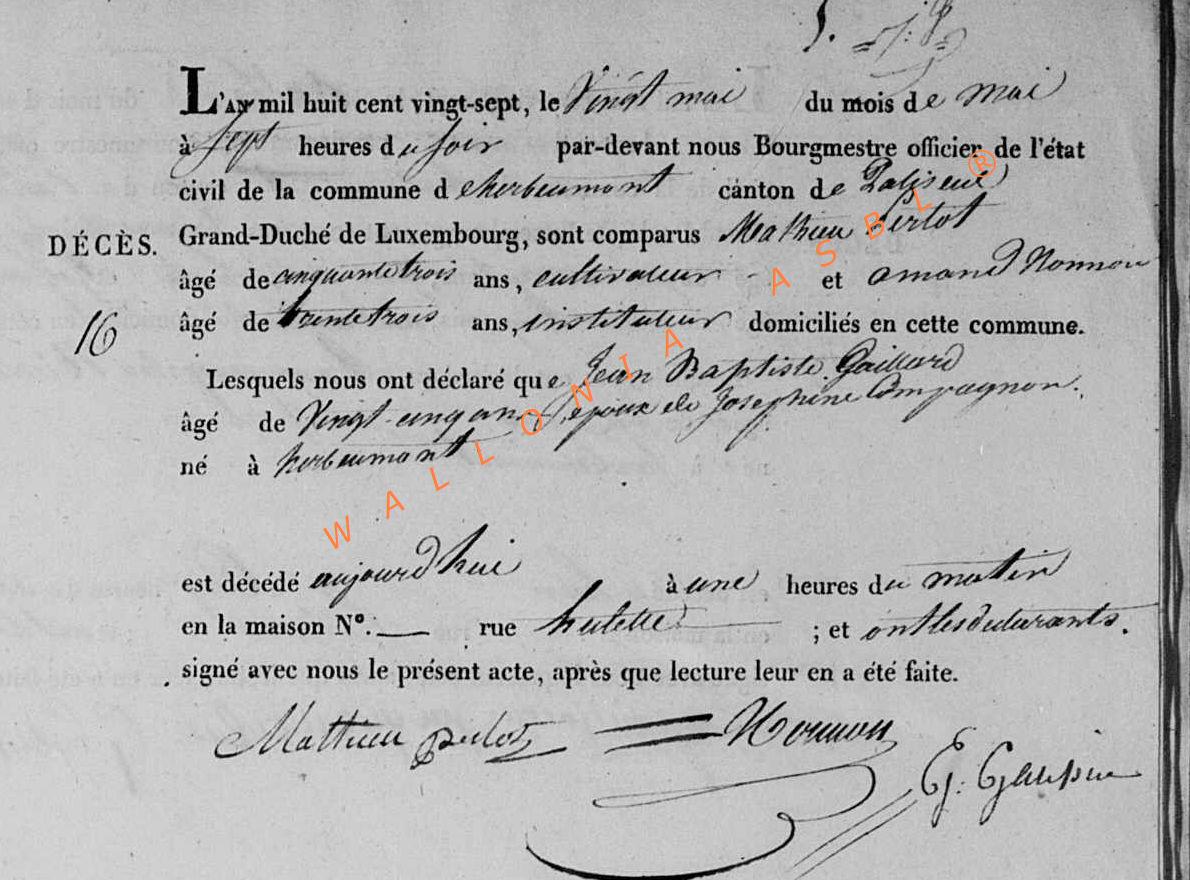 L'AN mil huit cent vingt-sept, le Vingt mai du mois de mai
à Sept heures du Soir par-devant nous Bourgmestre officier de l'état
civil de la commune d'herbeumont canton de Paliseul
DÉCÈS. Grand-Duché de Luxembourg, sont comparus Mathieu Perlot
âgé de cinquantetrois ans, cultivateur et amand Nonnon
16 âgé de trentetrois ans, instituteur domiciliés en cette commune.
Lesquels nous ont déclaré que Jean Baptiste Gaillard
âgé de Vingt-cinq ans, époux de Josephine Compagnon.
né à herbeumont
est décédé aujourd'hui à une heures du matin
en la maison N°. — rue hulette ; et ont les déclarants.
signé avec nous le présent acte, après que lecture leur en a été faite.
Mathieu perlot Nonnon
WALLONIA ASBL ®